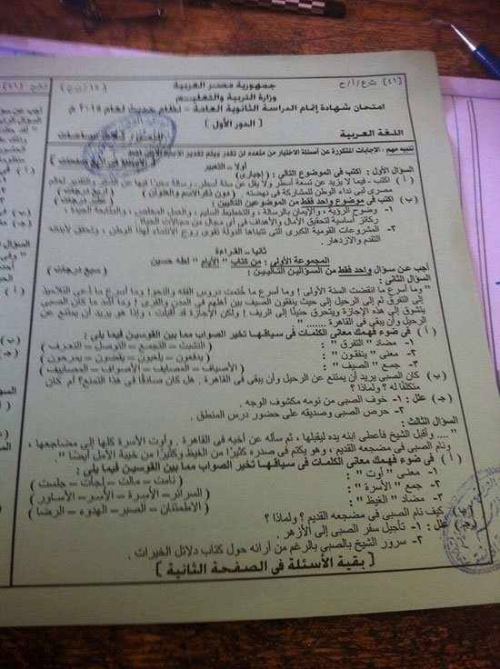 [٤١] ث.ع/أ/ح
جمهورية مصر العربية
وزارة التربية والتعليم
امتحان شهادة إتمام الدراسة الثانوية العامة - نظام حديث لعام ٢٠١٥ م
[ الدور الأول ]
اللغة العربية
تنبيه مهم : الإجابات المتكررة عن أسئلة الاختيار من متعدد لن تقدر ويتم تقدير الإجابة الأولى فقط
أولاً - التعبير
السؤال الأول : اكتب في الموضوع التالي : ( إجباري )
( أ ) اكتب - فيما لا يزيد عن تسعة أسطر ولا يقل عن ستة أسطر - رسالة
مصري لبى نداء الوطن للمشاركة في نهضته . ( دون ذكر الاسم والعنوان )
(ب) اكتب في موضوع واحد فقط من الموضوعين التاليين :
١- وضوح الرؤية ، والإيمان بالرسالة ، والتخطيط السليم ، والعمل المخلص ، والمتابعة الجيدة ،
ركائز أساسية لتحقيق الآمال والأهداف في أي مجال من مجالات الحياة .
٢- المشروعات القومية الكبرى التي تتبناها الدولة تقوي روح الانتماء لهذا الوطن ، وتحقق لأبنائه
التقدم والازدهار .
ثانياً - القراءة
المجموعة الأولى : من كتاب " الأيام " لطه حسين
أجب عن سؤال واحد فقط من السؤالين التاليين :
السؤال الثاني :
" وما أسرع ما انقضت السنة الأولى ! وما أسرع ما ختمت دروس الفقه والنحو ! وما أسرع ما دعي التلاميذ
إلى التفرق ثم إلى الرحيل إلى حيث ينفقون الصيف بين أهلهم في المدن والقرى ! وما أشد ما كان الصبي
يتشوق إلى هذه الإجازة ويتحرق حنيناً إلى الريف ! ولكن الإجازة قد أقبلت ، وإذا هو يريد أن يمتنع عن
الرحيل وأن يبقى في القاهرة ....... "
( أ ) في ضوء فهمك معاني الكلمات في سياقها تخير الصواب مما بين القوسين فيما يلي :
١- مضاد " التفرق " : ( التثبت - التجمع - التوصل - التعرف )
٢- معنى " ينفقون " : ( يدفعون - يلعبون - يقضون - يمرحون )
٣- جمع " الصيف " : ( الأصياف - المصايف - الأصواف - المصاييف )
(ب) كان الصبي يريد أن يمتنع عن الرحيل وأن يبقى في القاهرة . هل كان صادقاً في هذا التمنع؟ أم كان
متكلفاً له ؟ ولماذا ؟
(جـ) علل : ١- خوف الصبي من نومه مكشوف الوجه .
٢- حرص الصبي وصديقه على حضور درس المنطق .
السؤال الثالث :
" .... وأقبل الشيخ فأعطى ابنه يده ليقبلها ، ثم سأله عن أخيه في القاهرة . وأوت الأسرة كلها إلى مضاجعها ،
ونام الصبي في مضجعه القديم ، وهو يكتم في صدره كثيراً من الغيظ وكثيراً من خيبة الأمل أيضاً "
( أ ) في ضوء فهمك معاني الكلمات في سياقها تخير الصواب مما بين القوسين فيما يلي :
١- معنى " أوت " : ( نامت - مالت - لجأت - جلست )
٢- جمع " الأسرة " : ( السرائر - الأسرة - الأسر - الأساور )
٣- مضاد " الغيظ " : ( الاطمئنان - الصبر - الهدوء - الرضا )
(ب) كيف نام الصبي في مضجعه القديم ؟ ولماذا ؟
(جـ) علل : ١- تأجيل سفر الصبي إلى الأزهر .
٢- سرور الشيخ بالصبي بالرغم من آرائه حول كتاب دلائل الخيرات .
[ بقية الأسئلة في الصفحة الثانية ]